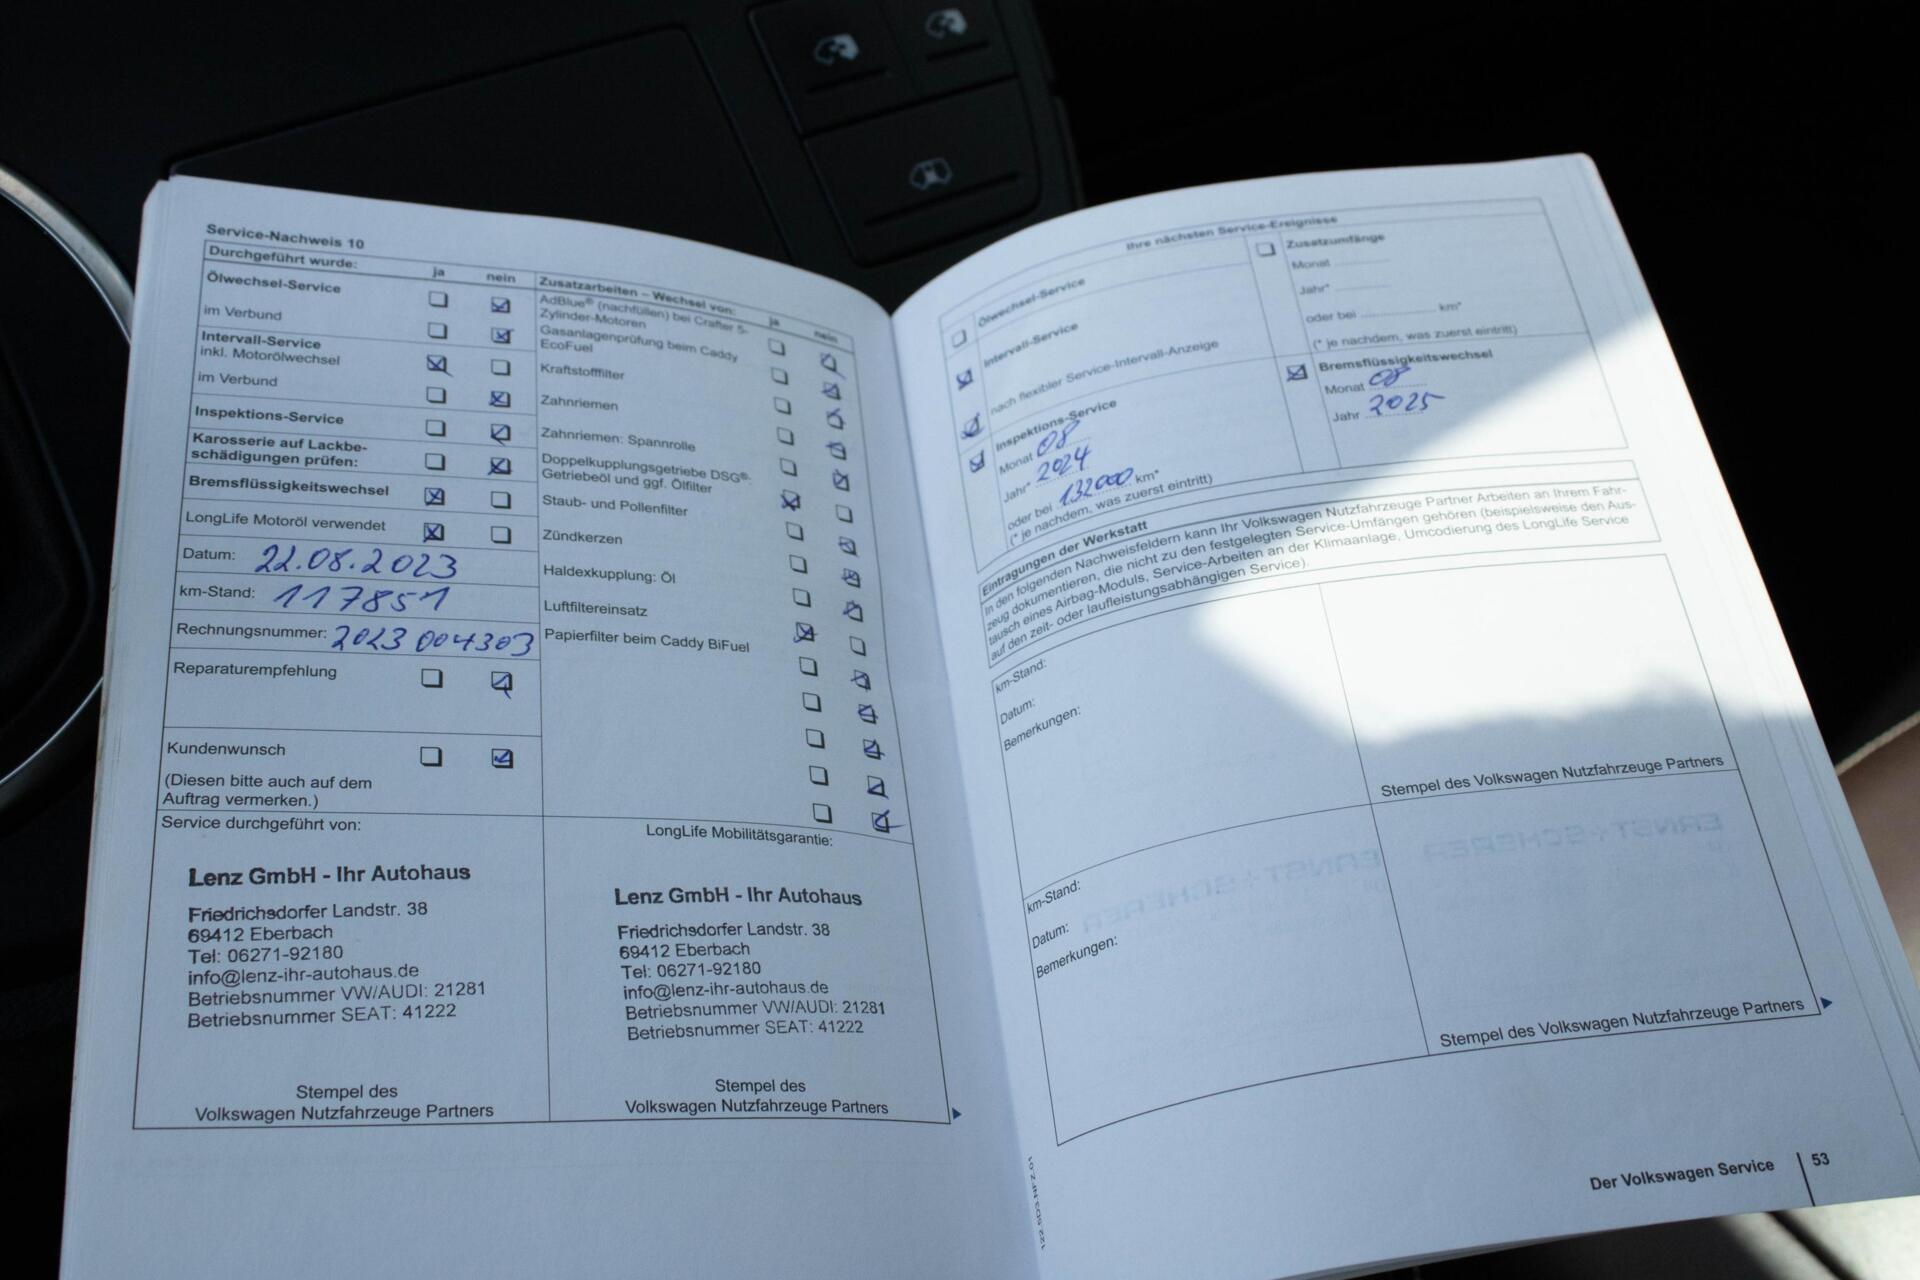 Service-Nachweis 10
Durchgeführt wurde:
ja
nein
Ölwechsel-Service
im Verbund
Intervall-Service
inkl. Motorölwechsel
im Verbund
Inspektions-Service
Karosserie auf Lackbe-
schädigungen prüfen:
Bremsflüssigkeitswechsel
LongLife Motoröl verwendet
Datum: 22.08.2023
km-Stand: 117851
Rechnungsnummer: 2023 004303
Reparaturempfehlung
Kundenwunsch
(Diesen bitte auch auf dem
Auftrag vermerken.)
Zusatzarbeiten – Wechsel von:
ja
nein
AdBlue® (nachfüllen) bei Crafter 5-
Zylinder-Motoren
Gasanlagenprüfung beim Caddy
EcoFuel
Kraftstofffilter
Zahnriemen
Zahnriemen: Spannrolle
Doppelkupplungsgetriebe DSG®:
Getriebeöl und ggf. Ölfilter
Staub- und Pollenfilter
Zündkerzen
Haldexkupplung: Öl
Luftfiltereinsatz
Papierfilter beim Caddy BiFuel
Service durchgeführt von:
Lenz GmbH - Ihr Autohaus
Friedrichsdorfer Landstr. 38
69412 Eberbach
Tel: 06271-92180
info@lenz-ihr-autohaus.de
Betriebsnummer VW/AUDI: 21281
Betriebsnummer SEAT: 41222
Stempel des
Volkswagen Nutzfahrzeuge Partners
LongLife Mobilitätsgarantie:
Lenz GmbH - Ihr Autohaus
Friedrichsdorfer Landstr. 38
69412 Eberbach
Tel: 06271-92180
info@lenz-ihr-autohaus.de
Betriebsnummer VW/AUDI: 21281
Betriebsnummer SEAT: 41222
Stempel des
Volkswagen Nutzfahrzeuge Partners
Ihre nächsten Service-Ereignisse
Ölwechsel-Service
Intervall-Service
nach flexibler Service-Intervall-Anzeige
Inspektions-Service
Monat 08
Jahr* 2024
oder bei 132000 km*
(* je nachdem, was zuerst eintritt)
Zusatzumfänge
Monat
Jahr*
oder bei km*
(* je nachdem, was zuerst eintritt)
Bremsflüssigkeitswechsel
Monat 08
Jahr 2025
Eintragungen der Werkstatt
In den folgenden Nachweisfeldern kann Ihr Volkswagen Nutzfahrzeuge Partner Arbeiten an Ihrem Fahr-
zeug dokumentieren, die nicht zu den festgelegten Service-Umfängen gehören (beispielsweise den Aus-
tausch eines Airbag-Moduls, Service-Arbeiten an der Klimaanlage, Umcodierung des LongLife Service
auf den zeit- oder laufleistungsabhängigen Service).
km-Stand:
Datum:
Bemerkungen:
Stempel des Volkswagen Nutzfahrzeuge Partners
km-Stand:
Datum:
Bemerkungen:
Stempel des Volkswagen Nutzfahrzeuge Partners
Der Volkswagen Service
53